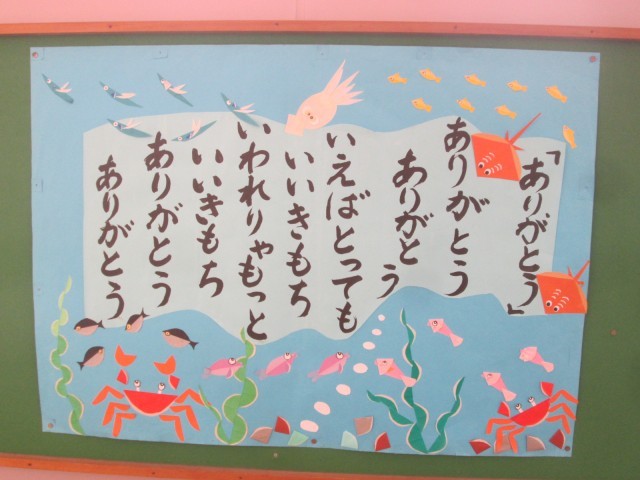 「ありがとう」
ありがとう
ありがとう
いえばとっても
いいきもち
いわれりゃもっと
いいきもち
ありがとう
ありがとう